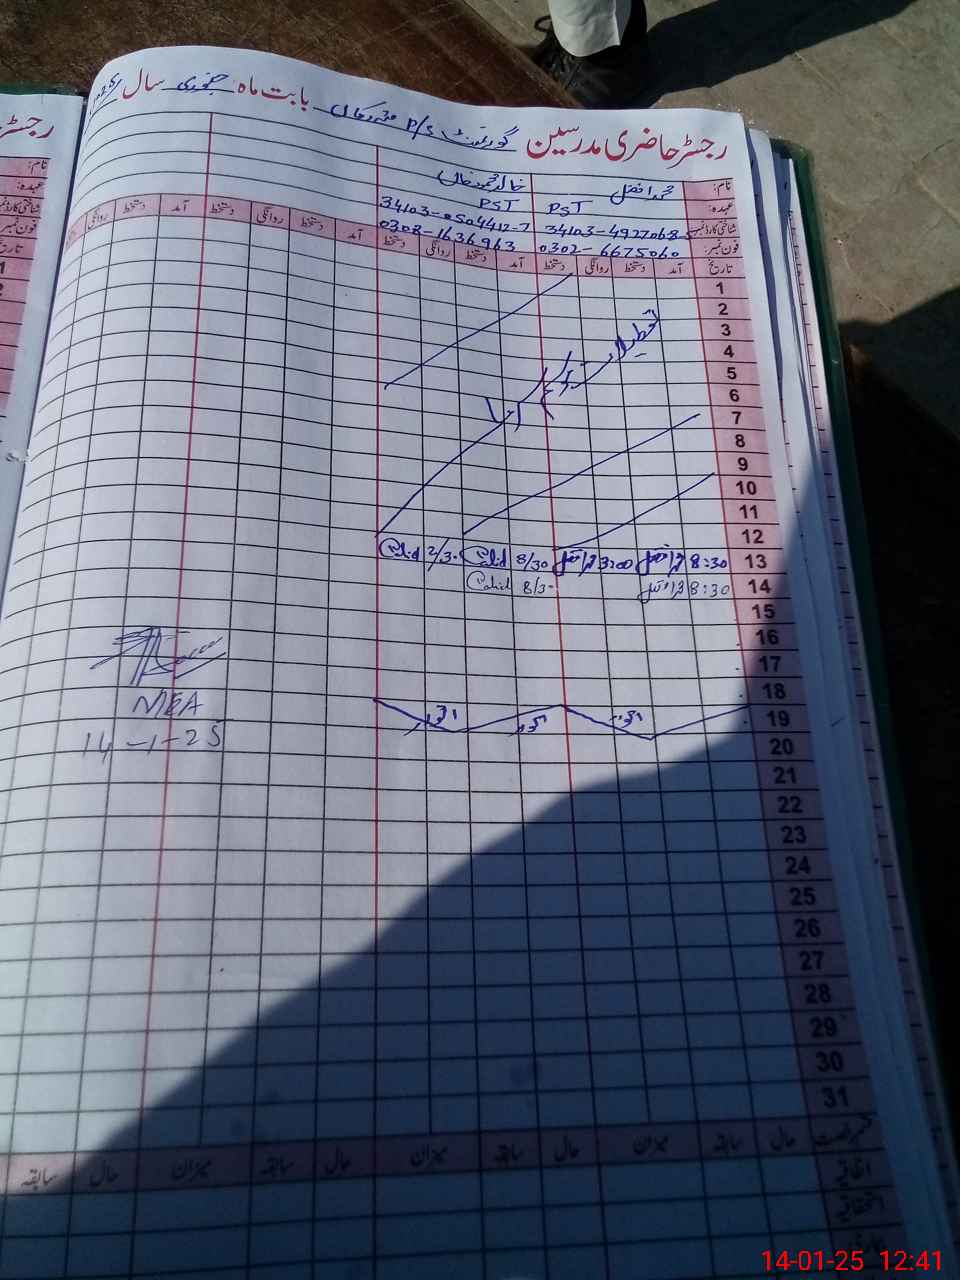 رجسٹر حاضری مدرسین گورنمنٹ P/S بابت ماہ جنوری سال 2025
نام: محمد افضل خالد محمود خان
عہدہ: PST PST
شناختی کارڈ نمبر 34103-4927068-5 34103-0504412-7
فون نمبر: 0302-6675060 0308-1636963
تاریخ آمد دستخط روانگی دستخط آمد دستخط روانگی دستخط آمد دستخط روانگی دستخط آمد دستخط روانگی
1
2
3
تعطیلات
4
5
6
سرما
7
8
9
10
11
12
13 8:30 محمد افضل 3:00 محمد افضل 8/30 Khalid 2/30 Khalid
14 8:30 محمد افضل 8/30 Khalid
15
16
17
18
MEA
19 اتوار اتوار اتوار
14-1-25
20
21
22
23
24
25
26
27
28
29
30
31
قسم رخصت حال سابقہ میزان حال سابقہ میزان حال سابقہ میزان حال سابقہ
اتفاقیہ
استحقاقیہ
رجسٹر
نام:
عہدہ:
شناختی کارڈ نمبر
فون نمبر
تاریخ
1
2
14-01-25 12:41